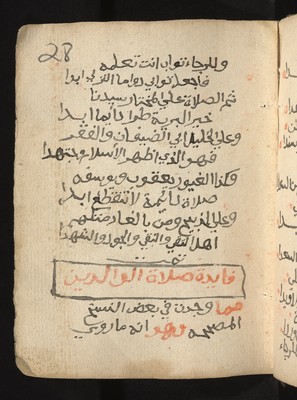 28
وللرجاء ثواب انت تعلمه
فاجعل ثوابي دواما اللذي ابدا
ثم الصلاة على المختار سيدنا
خير البرية طرا دايما ابدا
وعلى الخليل ابي الضيفان والفقر
فهو الذي اظهر الاسلام وجتهدا
وكذا الغيور يعقوب ويوسفه
صلاة دايمة لا تنقطع ابدا
وعلى الذبيح ومن بالغار
اهل التقى والنقى والجود والشهدا
تمت
فايدة صلاة الوالدين
مما وجدت في بعض النسخ
المصححه وهو انه ما روي